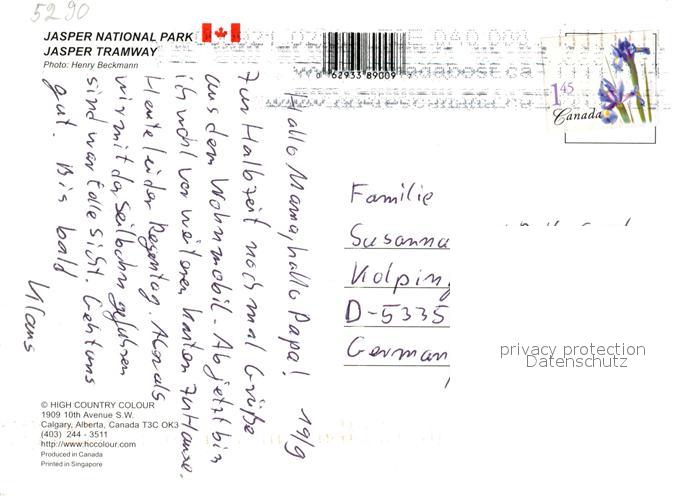 5290
JASPER NATIONAL PARK
JASPER TRAMWAY
Photo: Henry Beckmann
0 62933 89009
1 45
Canada
Hallo Mama, hallo Papa! 19/9
Zur Halbzeit nochmal Grüße
aus dem Wohnmobil. Ab jetzt bin
ich wohl vor weiteren Karten zu Hause.
Heute leider Regentag. Als
wir mit der Seilbahn gefahren
sind war tolle Sicht. Geht uns
gut. Bis bald
Klaus
Familie
Susanna
Kolpin
D-5335
German
privacy protection
Datenschutz
© HIGH COUNTRY COLOUR
1909 10th Avenue S.W.
Calgary, Alberta, Canada T3C OK3
(403) 244 - 3511
http://www.hccolour.com
Produced in Canada
Printed in Singapore